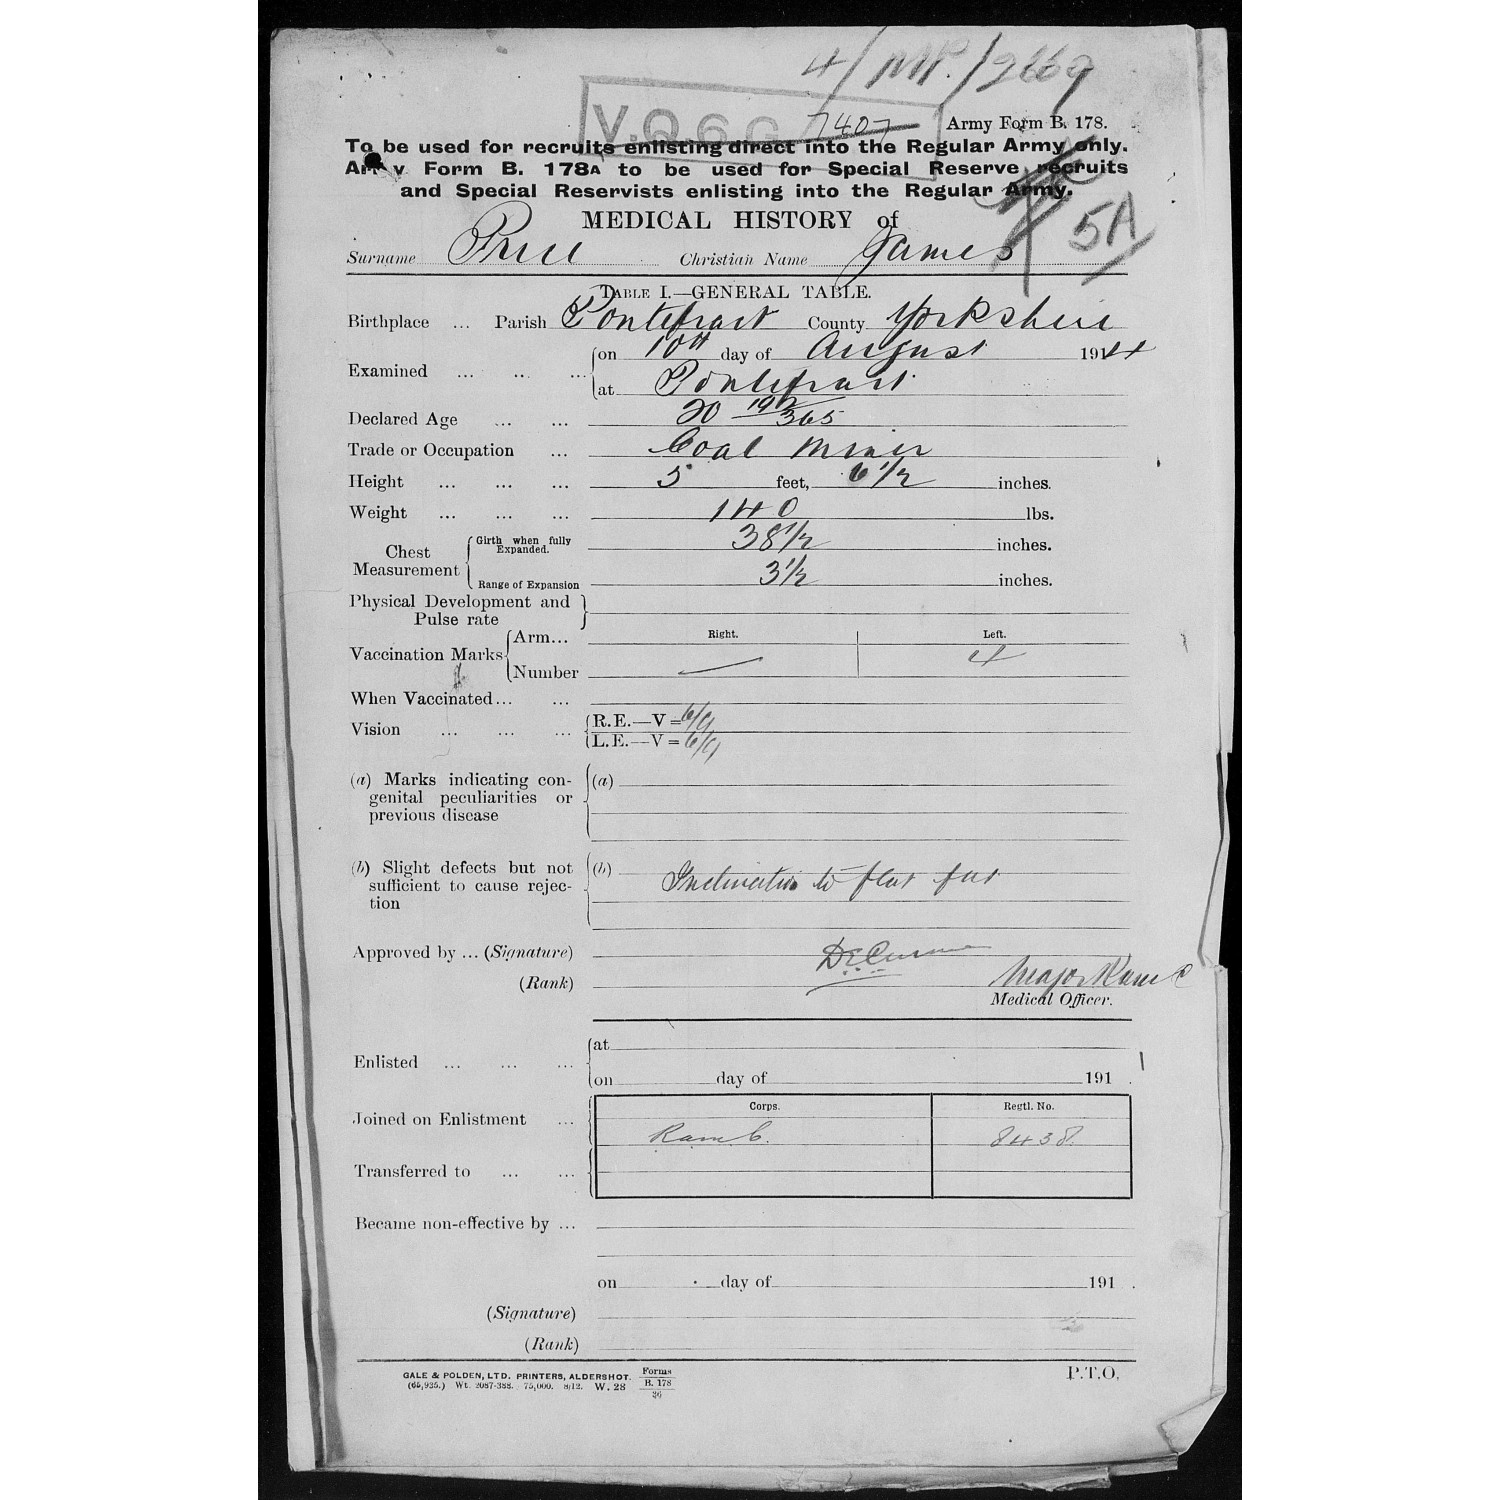 4/MP/2669
V.Q.6.G 7407
Army Form B. 178.
To be used for recruits enlisting direct into the Regular Army only.
Army Form B. 178A to be used for Special Reserve recruits
and Special Reservists enlisting into the Regular Army.
5A
MEDICAL HISTORY of
Surname Price Christian Name James
TABLE I.—GENERAL TABLE.
Birthplace ... Parish Pontefract County Yorkshire
Examined ... ... ... on 10th day of August 1914
at Pontefract
Declared Age ... ... 20 192/365
Trade or Occupation ... Coal Miner
Height ... ... ... 5 feet, 6 1/2 inches.
Weight ... ... ... 140 lbs.
Chest Measurement Girth when fully Expanded. 38 1/2 inches.
Range of Expansion 3 1/2 inches.
Physical Development and
Pulse rate
Vaccination Marks Arm... Right. Left.
Number — 4
When Vaccinated... ...
Vision ... ... ... R.E.—V = 6/9
L.E.—V = 6/9
(a) Marks indicating con- (a)
genital peculiarities or
previous disease
(b) Slight defects but not (b) Inclination to flat feet
sufficient to cause rejec-
tion
Approved by ... (Signature)
(Rank) Major RAMC
Medical Officer.
Enlisted ... ... ... at
on day of 191 .
Corps. Regtl. No.
Joined on Enlistment ... RAMC. 8438
Transferred to ... ...
Became non-effective by ...
on day of 191 .
(Signature)
(Rank)
GALE & POLDEN, LTD. PRINTERS, ALDERSHOT. Forms
(65,925.) Wt. 2087-388. 75,000. 8/12. W. 28 B. 178
36
P.T.O.